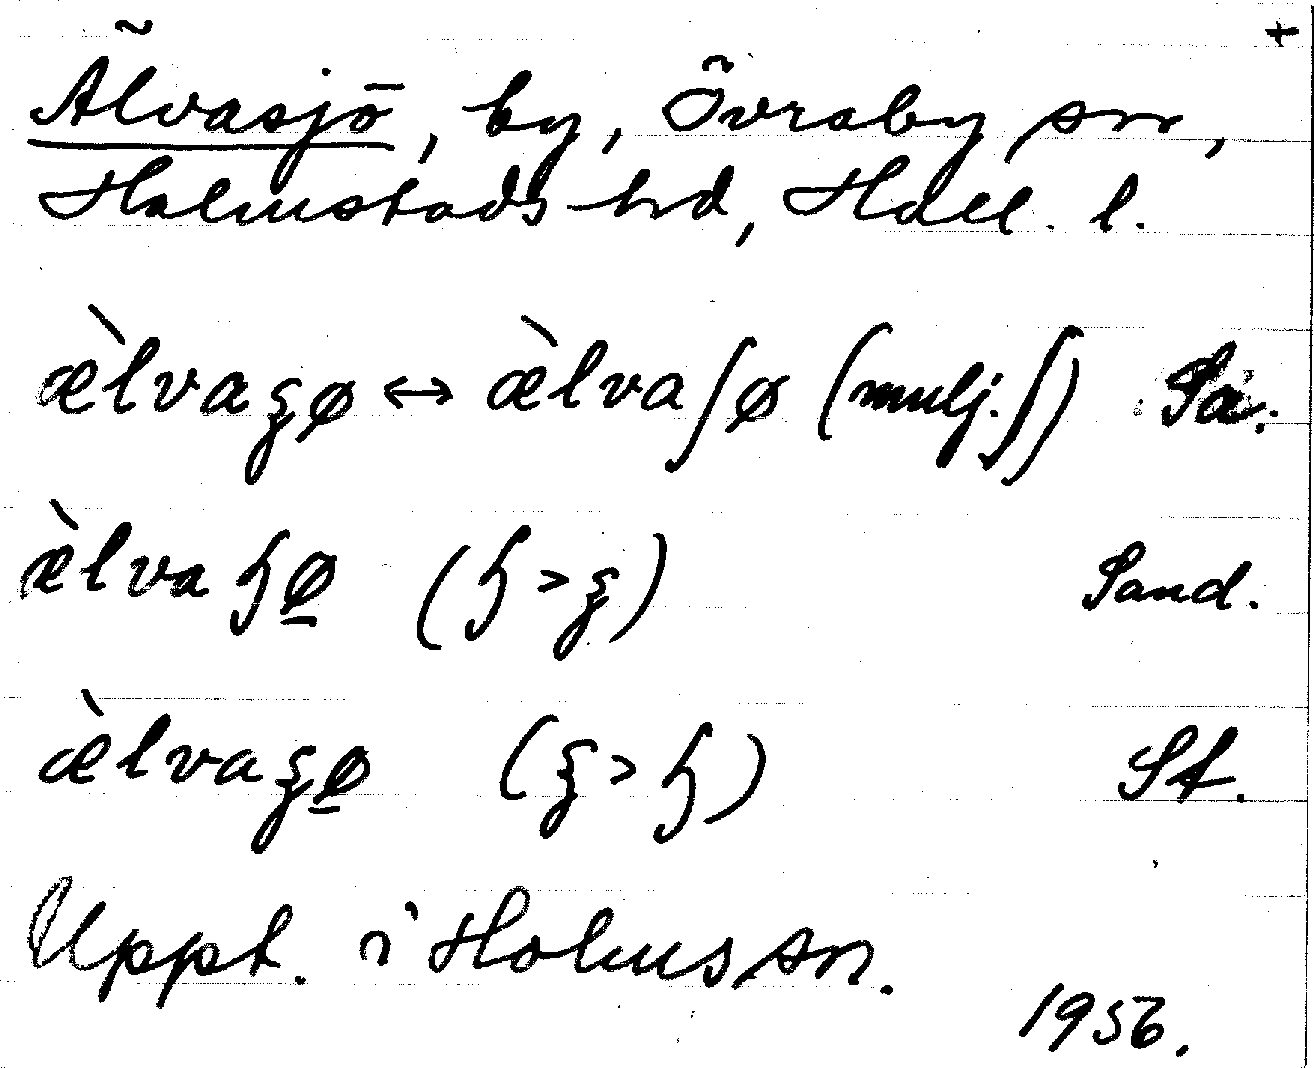 +
Älvasjö, by, Övraby sn,
Holmstads hd, Hall. l.
æ̀lvaʒø ↔ æ̀lvaʃø (mulj. ʃ) Så.
æ̀lvaɧø̱ (ɧ > ʒ) Sand.
æ̀lvaʒø̱ (ʒ > ɧ) St.
Uppt. i Holms sn.
1956.